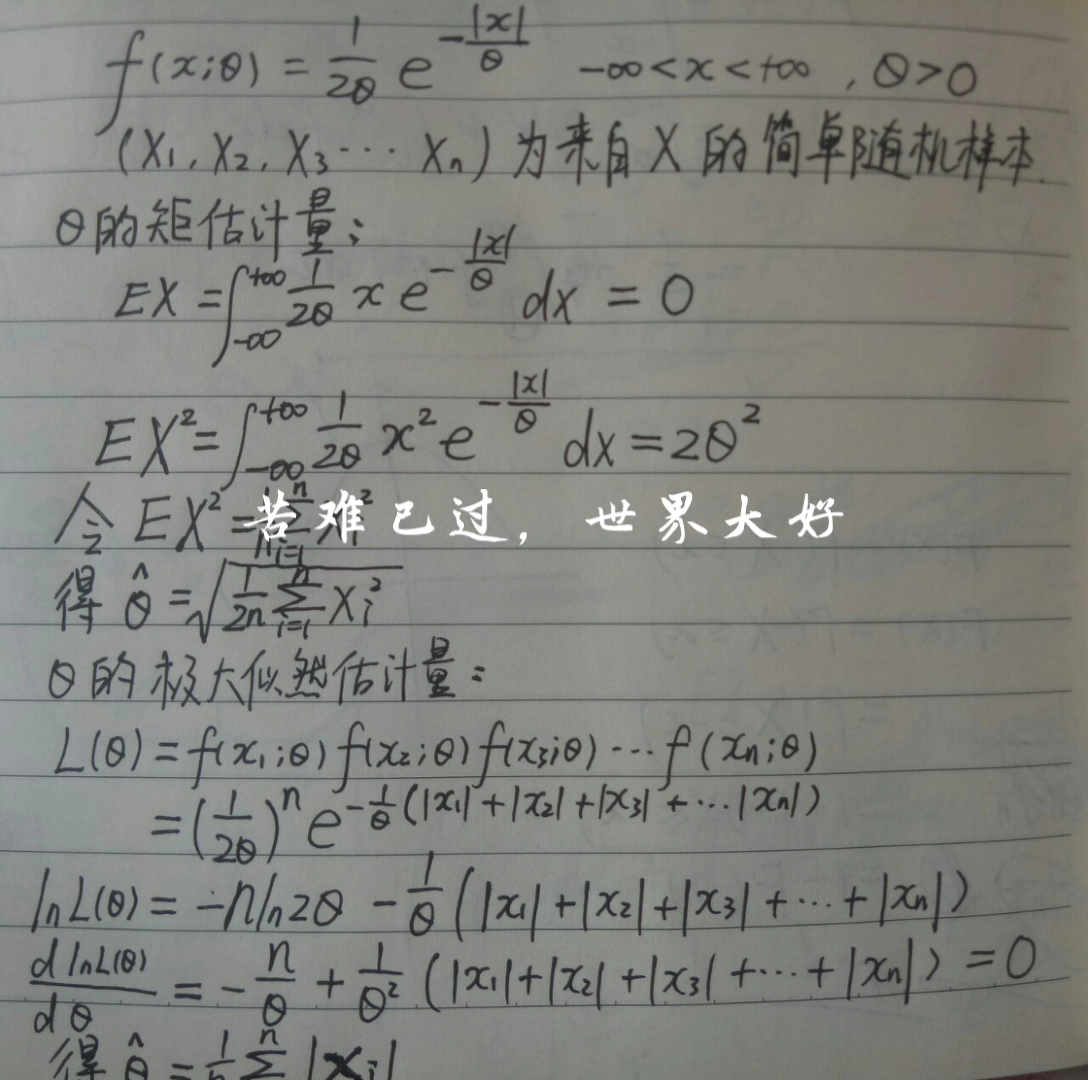 f(x;θ) = 1/(2θ) e^(-|x|/θ) -∞<x<+∞ , θ>0
(X₁, X₂, X₃ ··· Xₙ) 为来自 X 的简单随机样本.
θ的矩估计量:
EX = ∫_{-∞}^{+∞} 1/(2θ) x e^(-|x|/θ) dx = 0
EX² = ∫_{-∞}^{+∞} 1/(2θ) x² e^(-|x|/θ) dx = 2θ²
令 EX² =
苦难已过，世界大好
得 θ̂ = √(1/(2n) Σ_{i=1}^{n} Xᵢ²)
θ的极大似然估计量:
L(θ) = f(x₁;θ) f(x₂;θ) f(x₃;θ) ··· f(xₙ;θ)
= (1/(2θ))ⁿ e^(-1/θ (|x₁|+|x₂|+|x₃| + ···|xₙ|))
lnL(θ) = -nln2θ - 1/θ (|x₁|+|x₂|+|x₃| + ··· + |xₙ|)
dlnL(θ)/dθ = -n/θ + 1/θ² (|x₁|+|x₂|+|x₃| + ··· + |xₙ|) = 0
得 θ̂ = 1/n Σⁿ |Xᵢ|